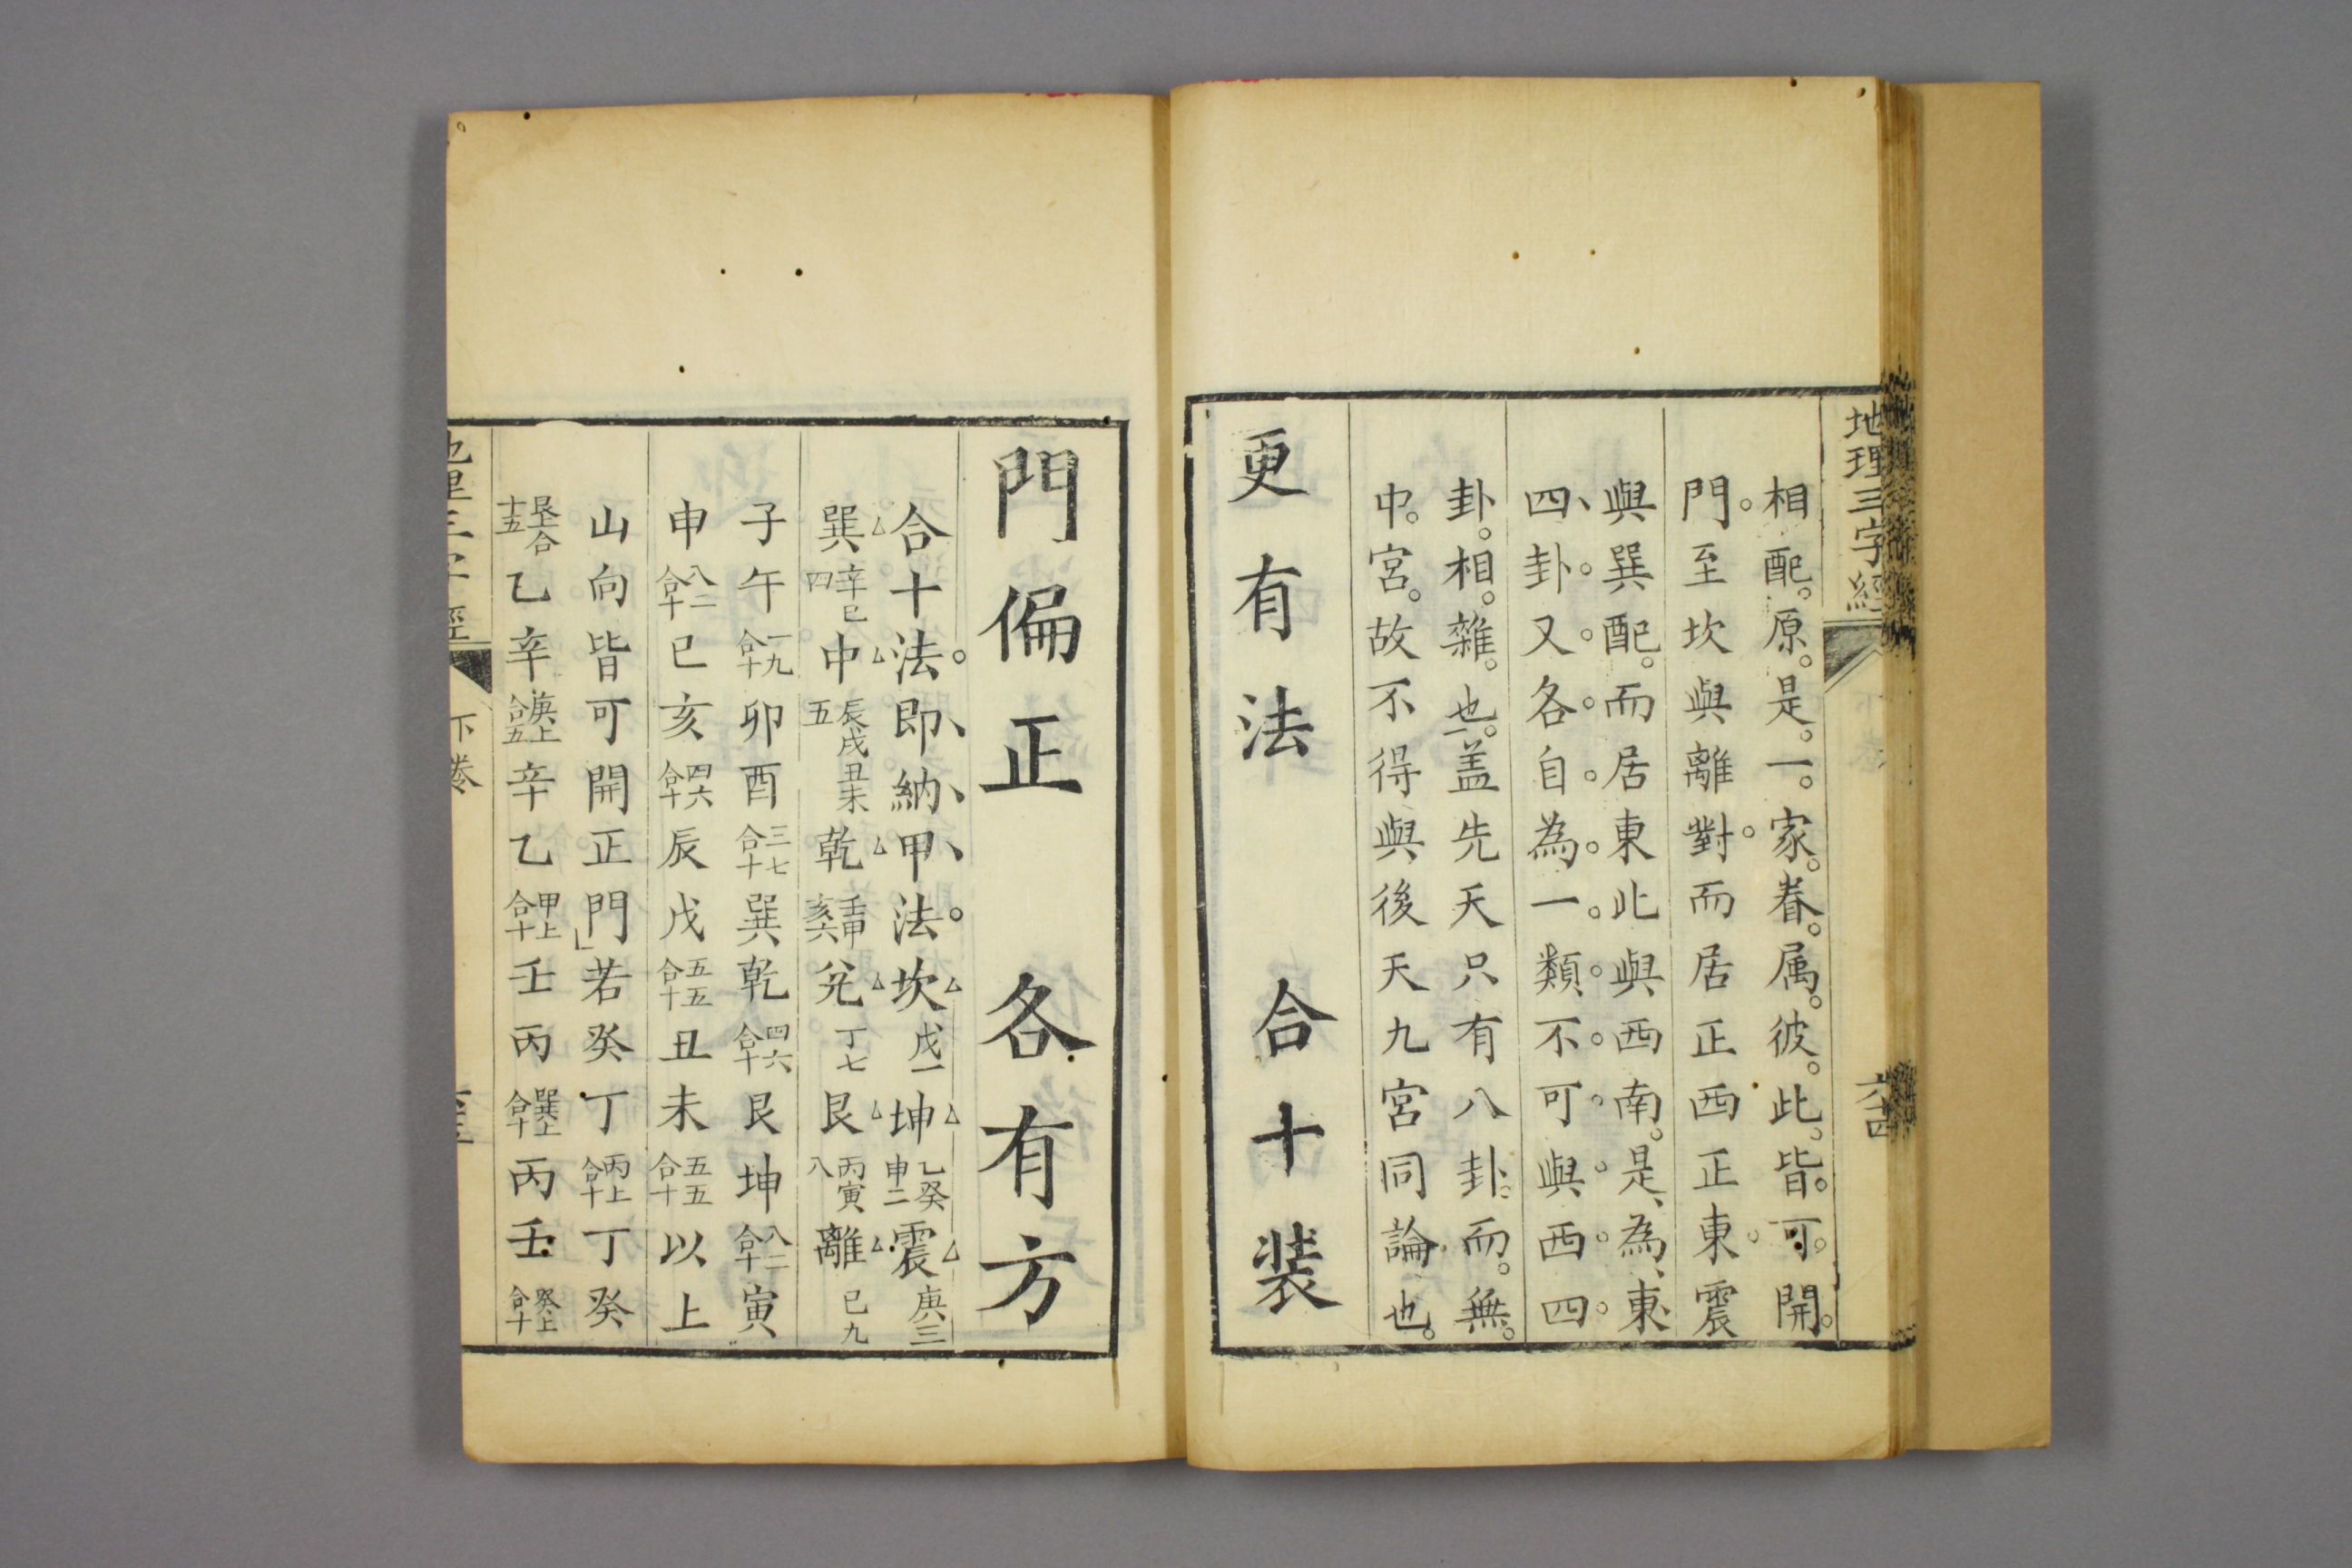 地理三字經
六十四
相配。原。是。一。家。眷。属。彼。此。皆。可。開。
門。至坎與離對。而居正西正東。震
與巽配。而居東北與西南。是、為、東、
四、卦。又。各。自。為。一。類。不。可。與。西。四。
卦。相。雜。也。蓋先天只有八卦。而。無。
中。宮。故不得與後天九宮同論也。
更有法　合十裝
門偏正　各有方
合十法。即、納、甲、法。坎戊一坤乙癸申二震庚三
巽辛巳四中辰戌丑未五乾壬甲亥六兌丁七艮丙寅八離己九
子午一九合十卯酉三七合十巽乾四六合十艮坤八二合十寅
申八二合十巳亥四六合十辰戌五五合十丑未五五合十以上
山向皆可開正門」若癸丁丙上合十丁癸
艮上合十五乙辛庚上合五辛乙甲上合十壬丙巽上合十丙壬癸上合十
下卷